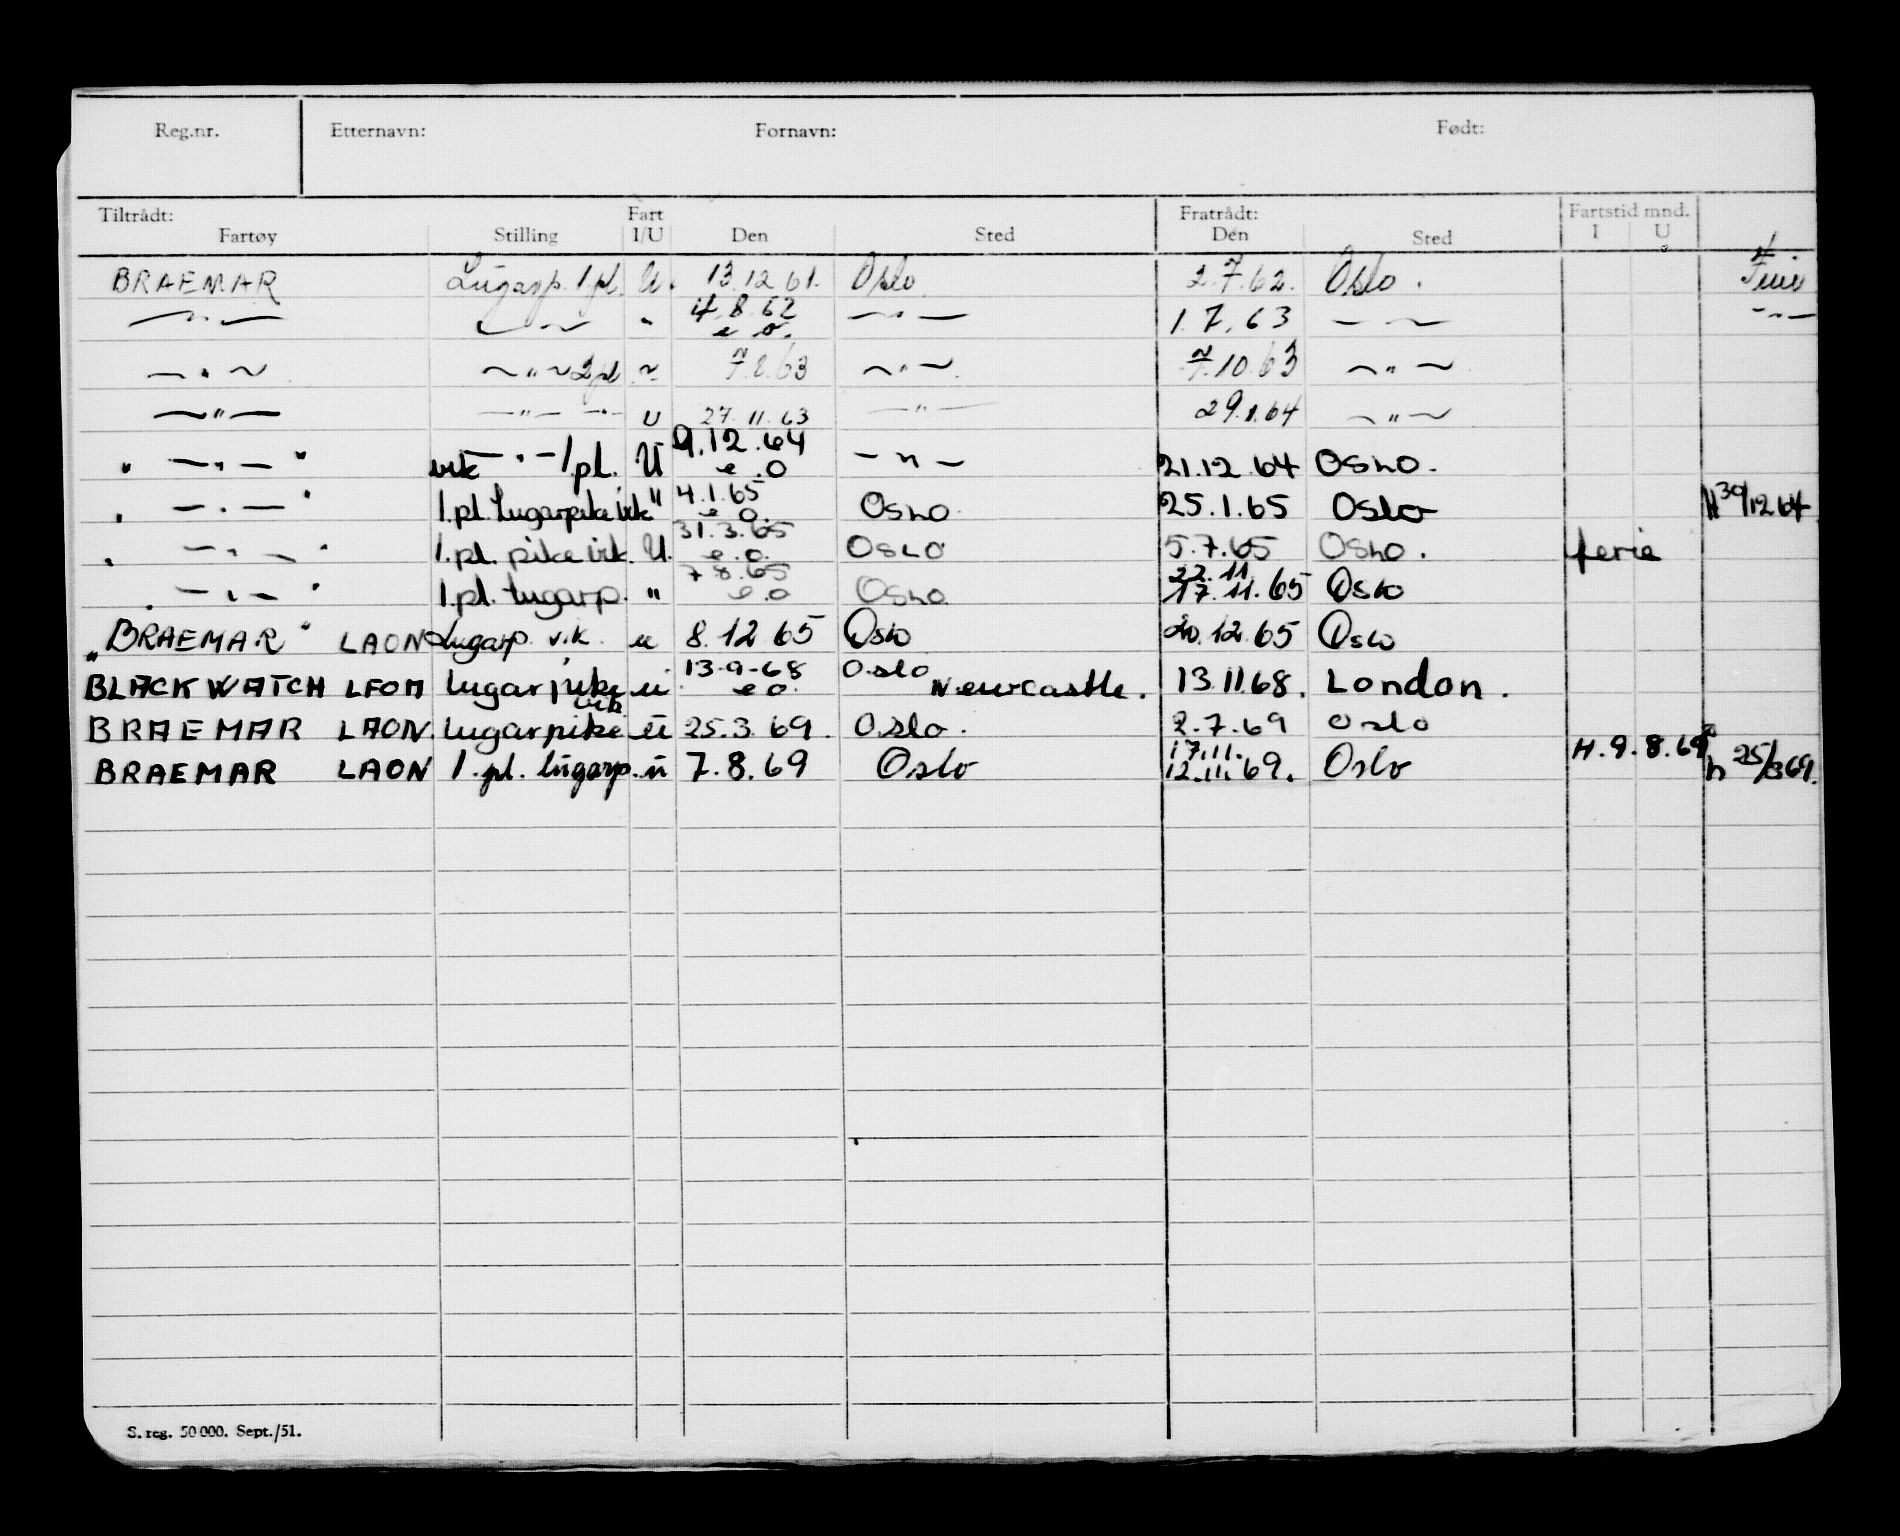 Reg.nr. Etternavn: Fornavn: Født:
Tiltrådt: Fart Fratrådt: Fartstid mnd.
Fartøy Stilling I/U Den Sted Den Sted I U
BRAEMAR Lugarp. 1 pl. U. 13.12.61. Oslo 2.7.62. Oslo.
— " — — " — " 4.8.62 e.o. — " — 1.7.63 — " — — " —
— " — — " — 2 pl " 7.8.63 — " — 7.10.63 — " —
— " — — " — — " — U 27.11.63 — " — 29.1.64 — " —
" — " — " vik — " — 1 pl. U 9.12.64 e.o — " — 21.12.64 Oslo.
" — " — " 1.pl. Lugarpike vik " 4.1.65 e.o. Oslo. 25.1.65 Oslo H 30/12 64
" — " — " 1.pl. pike vik. U. 31.3.65 e.o. Oslo 5.7.65 Oslo. ferie
" — " — " 1.pl. Lugarp. " 7.8.65 e.o Oslo 22.11 17.11.65 Oslo
"BRAEMAR" LAON Lugarp. vik. u 8.12.65 Oslo 20.12.65 Oslo
BLACK WATCH LFOM lugarpike vik u. 13-9-68 e.o. Oslo Newcastle. 13.11.68. London.
BRAEMAR LAON lugarpike u 25.3.69. Oslo. 2.7.69 Oslo
BRAEMAR LAON 1.pl. lugarp. u 7.8.69 Oslo 17.11. 12.11.69. Oslo H.9.8.69 h 25/3 69.
S. reg. 50 000. Sept./51.